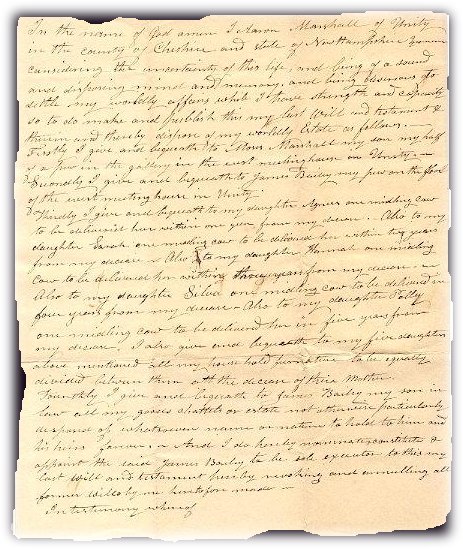 In the name of God amen I Aaron Marshall of Unity
in the county of Cheshire and state of New Hampshire Yeoman
considering the uncertainty of this life, and being of a sound
and disposing mind and memory, and being desirous to
settle my worldly affairs whilst I have strength and capacity
so to do make and publish this my last Will and testament &
therein and thereby dispose of my worldly Estate as follows. —
Firstly I give and bequeath to Marshall my son my half
of a pew in the gallery in the west meetinghouse in Unity. —
Secondly I give and bequeath to James Bailey my pew on the floor
of the west meetinghouse in Unity.
Thirdly I give and bequeath to my daughter Agnes one midling cow
to be delivered her within one year from my decease. Also to my
daughter Sarah one midling cow to be delivered her within two years
from my decease — Also to my daughter Hannah one midling
cow to be delivered her within three years from my decease. —
Also to my daughter Silva one midling cow to be delivered in
four years from my decease — Also to my daughter Polly
one midling cow to be delivered her in five years from
my decease. I also give and bequeath to my five daughters
above mentioned all my household furniture to be equally
divided between them att the decease of their Mother.
Fourthly I give and bequeath to James Bailey my son in
law all my goods chattels or estate not otherwise particularly
disposed of whatsoever name or nature to hold to him and
his heirs forever — And I do hereby nominate, constitute &
appoint the said James Bailey to be sole executor to this my
last Will and testament hereby revoking and annulling all
former wills by me heretofore made —
In testimony whereof